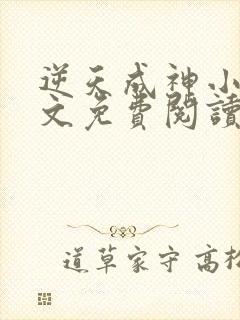 逆天成神小
文免費閱讀
道草家守 高松